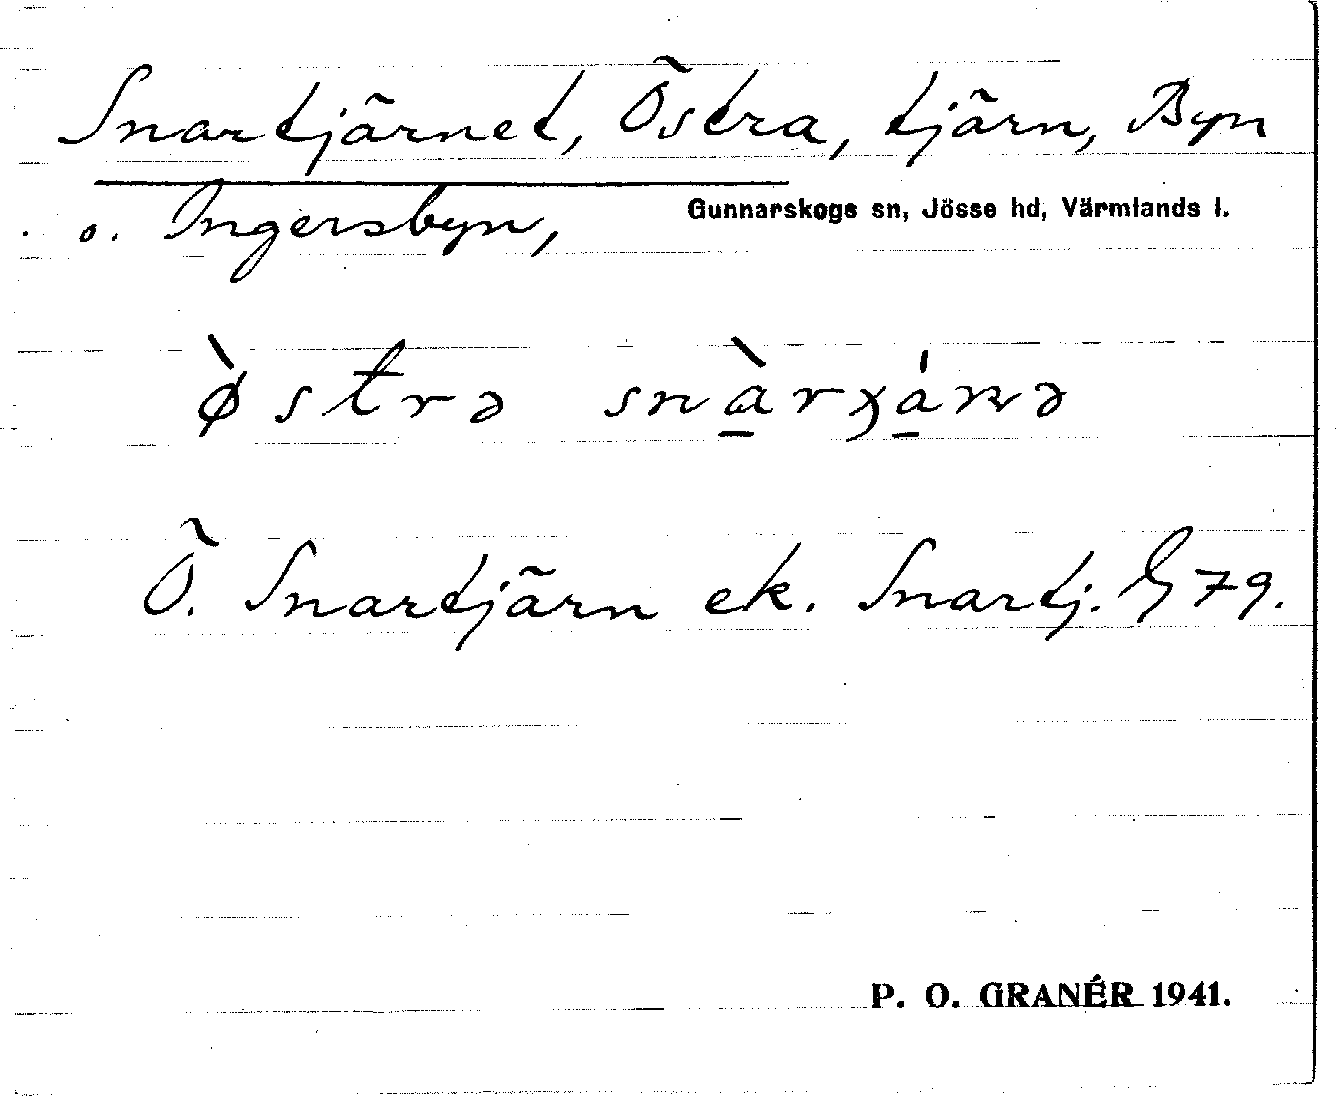 Snartjärnet, Östra, tjärn, Byn
o. Ingersbyn, Gunnarskogs sn, Jösse hd, Värmlands l.
ø̀strə snàrχánə
Ö. Snartjärn ek. Snartj. G 79.
P. O. GRANÉR 1941.